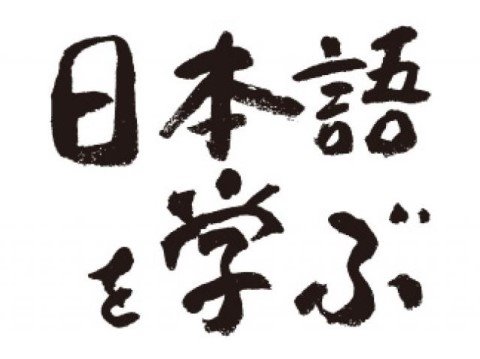 日本語
を学ぶ